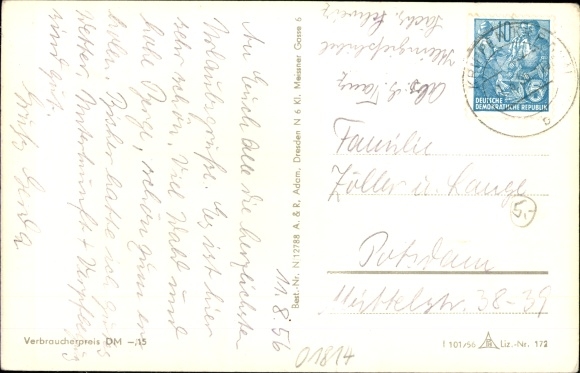 An Euch Alle die herzlichsten
Urlaubsgrüße. Es ist hier
sehr schön. Viel Wald und
hohe Berge, schön zum
holen. Bisher hatte ich gutes
Wetter. Unterkunft + Verpflegung
sind gut.
Gruß Gerda
11.8.56
Best.-Nr. N 12788 A. & R. Adam, Dresden N 6 Kl. Meissner Gasse 6
Abs. G.
Sächs. Schweiz
DEUTSCHE
DEMOKRATISCHE REPUBLIK
Familie
Zöller u. Lange
5,-
Potsdam
Mittelstr. 38-39
Verbraucherpreis DM –,15
01814
I 101/56 Liz.-Nr. 172